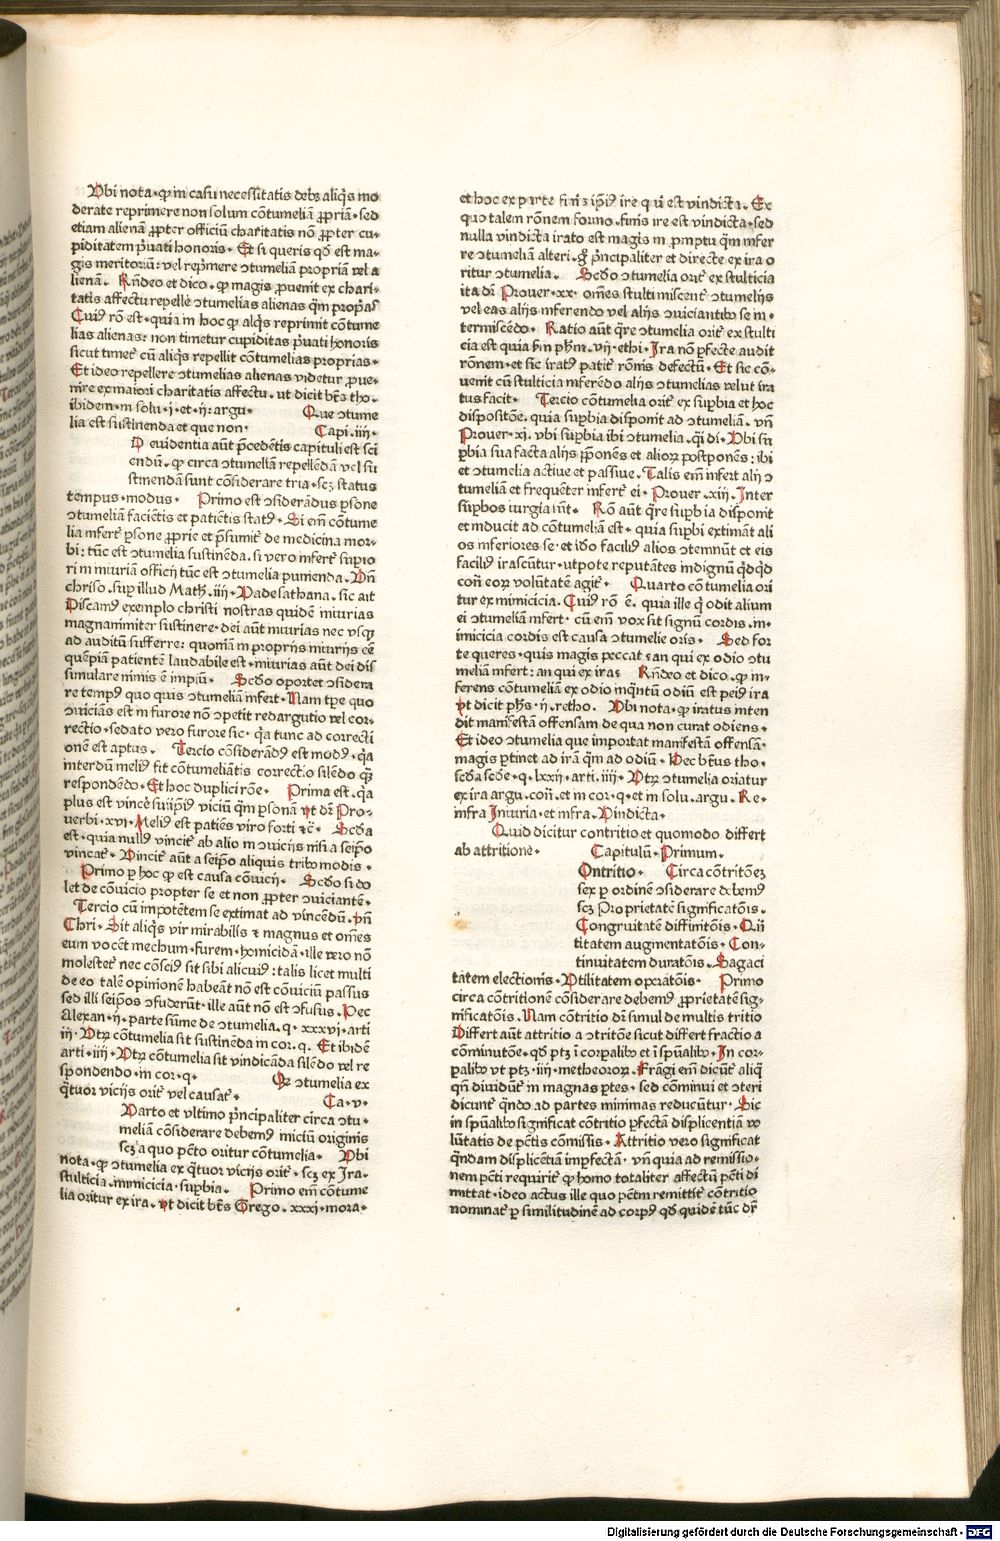 Ubi nota·qͥ in casu necessitatis debꝫ aliqͥs mo
derate reprimere non solum cōtumeliā ꝓpriā·sed
etiam alienā ꝓpter officiū charitatis nō ꝓpter cu-
piditatem p̄uati honoris· Et si queris qđ est ma-
gis meritoriū: vel rep̄mere ꝯtumeliā propriā vel a
lienā· Rn̄deo et dico·qͥ magis ꝓuenit ex chari-
tatis affectu repelle ꝯtumelias alienas q̄m propͥas
Cuiꝰ rō est·quia in hoc qͥ aliqͥs reprimit cōtume
lias alienas: non timetur cupiditas p̄uati honoris
sicut timet᷑ cū aliqͥs repellit cōtumelias proprias·
Et ideo repellere ꝯtumelias alienas videtur ꝓue-
nire ex maiori charitatis affectu· ut dicit bt̄s tho·
ibidem in solu·j·et·ij·argu· Que ꝯtume
lia est sustinenda et que non· Capi·iiij·
D euidentia aūt p̄cedentis capituli est sci
endū·qͥ circa ꝯtumeliā repellēdā vel su
stinendā sunt cōsiderare tria·scꝫ status
tempus·modus· Primo est ꝯsiderādus ꝑsone
ꝯtumeliā faciētis et patiētis statꝰ· Si em̄ cōtume
lia infert᷑ ꝑsone ꝓprie et p̄sumit᷑ de medicina mor-
bi: tūc est ꝯtumelia sustinēda· si vero infert᷑ supio
ri in iniuriā officij tūc est ꝯtumelia punienda· Vn̄
chriso·sup illud Math̄·iiij·Vade sathana·sic ait
Discamꝰ exemplo christi nostras quidē iniurias
magnanimiter sustinere·dei aūt iniurias nec vsqͥ
ad auditū sufferre: quoniā in proprijs iniurijs eē
quēpiā patientē laudabile est·iniurias aūt dei dis
simulare nimis ē impiū· Scđo oportet ꝯsidera
re tempꝰ quo quis ꝯtumeliā infert· Nam tp̄e quo
ꝯuiciās est in furore nō ꝯpetit redargutio vel cor-
rectio·sedato vero furore sic·qͣa tunc ad correcti
onē est aptus· Tercio cōsiderādꝰ est modꝰ·qͣa
interdū meliꝰ fit cōtumeliātis correctio silēdo qͣꝫ
respondēdo·Et hoc duplici rōe· Prima est·qͣa
plus est vincēs suiip̄iꝰ viciū qͥm ꝑsonā vt dr̄ Pro-
uerbi·xvi·Meliꝰ est patiēs viro forti ⁊c̄· Scđa
est·quia nullꝰ vincit᷑ ab alio in ꝯuicijs nisi a seip̄o
vincat᷑· Vincit᷑ aūt a seip̄o aliquis tribꝰ modis·
Primo ꝑ hoc qͥ est causa cōuicij· Scđo si do
let de cōuicio propter se et non ꝓpter ꝯuiciantē·
Tercio cū impotētem se extimat ad vincēdū·vn̄
Chri· Sit aliqͥs vir mirabilis ⁊ magnus et om̄es
eum vocēt mechum·furem·homicidā·ille vero nō
molestet᷑ nec cōsciꝰ sit sibi alicui: talis licet multi
de eo talē opinionē habeāt nō est cōuiciū passus
sed illi seip̄os ꝯfuderūt·ille aūt nō est ꝯfusus· Nec
Alexan·ij·parte sūme de ꝯtumelia·q·xxxvj·arti
iij·Utrꝫ cōtumelia sit sustinēda in cor·q· Et ibidē
arti·iiij·Utrꝫ cōtumelia sit vindicāda silēdo vel re
spondendo·in cor·q· Qͥ ꝯtumelia ex
qͣtuor vicijs orit᷑ vel causat᷑· Ca·v·
Uarto et vltimo p̄ncipaliter circa ꝯtu-
meliā cōsiderare debemꝰ iniciū originis
scꝫ a quo pctō oritur cōtumelia· Ubi
nota·qͥ ꝯtumelia ex qͣtuor vicijs orit᷑·scꝫ ex Jra·
stulticia·inimicicia·supbia· Primo em̄ cōtume
lia oritur ex ira·vt dicit bt̄s Grego·xxxj·mora·
et hoc ex parte finis ip̄iꝰ ire qui est vindicta· Ex
quo talem rōnem formo·finis ire est vindicta·sed
nulla vindicta irato est magis in ꝓmptu qͥm infer
re ꝯtumeliā alteri·gͦ p̄ncipaliter et directe ex ira o
ritur ꝯtumelia· Scđo ꝯtumelia orit᷑ ex stulticia
ita dr̄ Prouer·xx·om̄es stulti miscent᷑ ꝯtumelijs
vel eas alijs inferendo vel alijs ꝯuiciantibꝰ se in-
termiscēdo· Ratio aūt qͣre ꝯtumelia orit᷑ ex stulti
cia est quia scd̄m phm̄·vij·ethi·Jra nō ꝑfecte audit
rōnem·et sic iratꝰ patit᷑ rōnis defectū· Et sic cō-
uenit cū stulticia inferēdo alijs ꝯtumelias velut ira
tus facit· Tercio cōtumelia orit᷑ ex supbia et hoc
dispositōe·quia supbia disponit ad ꝯtumeliā·vn̄
Prouer·xj·vbi supbia ibi ꝯtumelia·qͣsi di·Ubi su
pbia sua facta alijs p̄ponēs et alioꝝ postponēs: ibi
et ꝯtumelia actiue et passiue· Talis em̄ infert alijs ꝯ
tumeliā et frequēter infert᷑ ei·Prouer·xiij·Jnter
supbos iurgia sunt· Rō aūt qͣre supbia disponit
et inducit ad cōtumeliā est·quia supbi extimāt ali
os inferiores se·et iđo faciliꝰ alios ꝯtemnūt et eis
faciliꝰ irascūtur·utpote reputātes indignū qͥdqͥd
con̄ eoꝝ volūtatē agit᷑· Quarto cōtumelia ori
tur ex inimicicia·Cuiꝰ rō ē·quia ille qͥ odit alium
ei ꝯtumeliā infert·cū em̄ vox sit signū cordis·in-
imicicia cordis est causa ꝯtumelie oris· Sed for
te queres·quis magis peccat·an qui ex odio ꝯtu
meliā infert: an qui ex ira· Rn̄deo et dico·qͥ in-
ferens cōtumeliā ex odio inqͣntū odiū est peiꝰ ira
vt dicit phs̄·ij·retho· Ubi nota·qͥ iratus inten
dit manifestā offensam de qua non curat odiens·
Et ideo ꝯtumelia que importat manifestā offensā·
magis ꝑtinet ad irā qͥm ad odiū· Nec bt̄us tho·
scđa scđe·q·lxxij·arti·iiij·Utrꝫ ꝯtumelia oriatur
ex ira argu·con̄·et in cor·q·et in solu·argu· Re-
infra Jniuria·et infra·Vindicta·
Quid dicitur contritio et quomodo differt
ab attritione· Capitulū·Primum·
Ontritio· Circa cōtritōeꝫ
sex ꝑ ordinē ꝯsiderare debemꝰ
scꝫ Proprietatē significatōis·
Congruitatē diffinitōis·Quā
titatem augmentatōis·Con-
tinuitatem duratōis·Sagaci
tatem electionis·Utilitatem oꝑatōis· Primo
circa cōtritionē cōsiderare debemꝰ ꝓprietatē sig-
nificatōis· Nam cōtritio dr̄ simul de multis tritio
Differt aūt attritio a ꝯtritōe sicut differt fractio a
cōminutōe·qđ ptꝫ ī corꝑalibꝰ et ī spūalibꝰ·Jn cor-
ꝑalibꝰ vt ptꝫ·iiij·metheoroꝝ·Frāgi em̄ dicūt᷑ aliqͣ
qn̄ diuidūt᷑ in magnas ꝑtes·sed cōminui et ꝯteri
dicunt᷑ qn̄do ad partes minimas reducūtur·Sic
in spūalibꝰ significat cōtritio ꝑfectā displicentiā vo
lūtatis de pctīs cōmissis· Attritio vero significat
qͣndam displicētiā imꝑfectā·vn̄ quia ad remissio-
nem pctī requirit᷑ qͥ homo totaliter affectū pctī di
mittat·ideo actus ille quo pctm̄ remittit᷑ cōtritio
nominat᷑ ꝑ similitudinē ad corpꝰ qđ quidē tūc dr̄
Digitalisierung gefördert durch die Deutsche Forschungsgemeinschaft - DFG